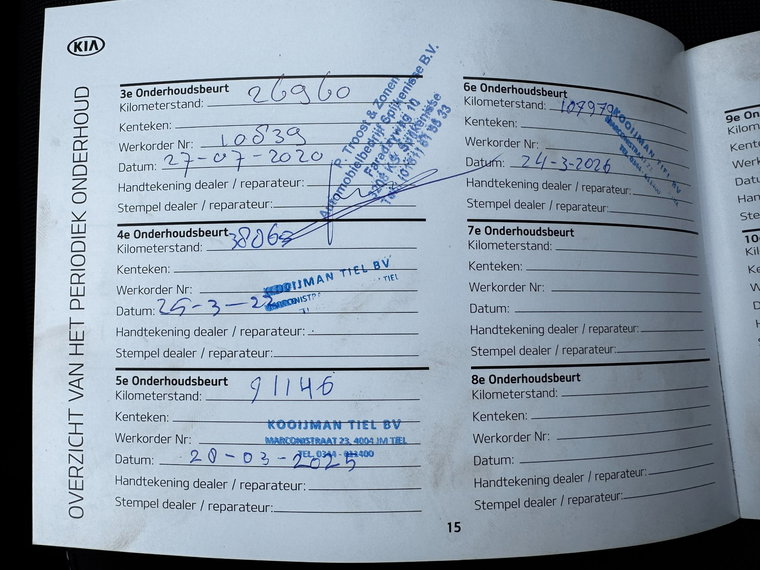 KIA
OVERZICHT VAN HET PERIODIEK ONDERHOUD
3e Onderhoudsbeurt
Kilometerstand: 26960
Kenteken:
Werkorder Nr: 10839
Datum: 27-07-2020
Handtekening dealer / reparateur:
Stempel dealer / reparateur:
P. Troost & Zonen
Automobielbedrijf Spijkenisse B.V.
Faradayweg 10
Spijkenisse
4e Onderhoudsbeurt
Kilometerstand:
Kenteken:
Werkorder Nr:
Datum: 25-3-22
Handtekening dealer / reparateur:
Stempel dealer / reparateur:
KOOIJMAN TIEL BV
TIEL
5e Onderhoudsbeurt
Kilometerstand: 91146
Kenteken:
Werkorder Nr:
Datum: 20-03-2025
Handtekening dealer / reparateur:
Stempel dealer / reparateur:
KOOIJMAN TIEL BV
MARCONISTRAAT 23, 4004 JM TIEL
TEL. 0344 -
6e Onderhoudsbeurt
Kilometerstand: 107979
Kenteken:
Werkorder Nr:
Datum: 24-3-2026
Handtekening dealer / reparateur:
Stempel dealer / reparateur:
KOOIJMAN TIEL BV
7e Onderhoudsbeurt
Kilometerstand:
Kenteken:
Werkorder Nr:
Datum:
Handtekening dealer / reparateur:
Stempel dealer / reparateur:
8e Onderhoudsbeurt
Kilometerstand:
Kenteken:
Werkorder Nr:
Datum:
Handtekening dealer / reparateur:
Stempel dealer / reparateur:
15